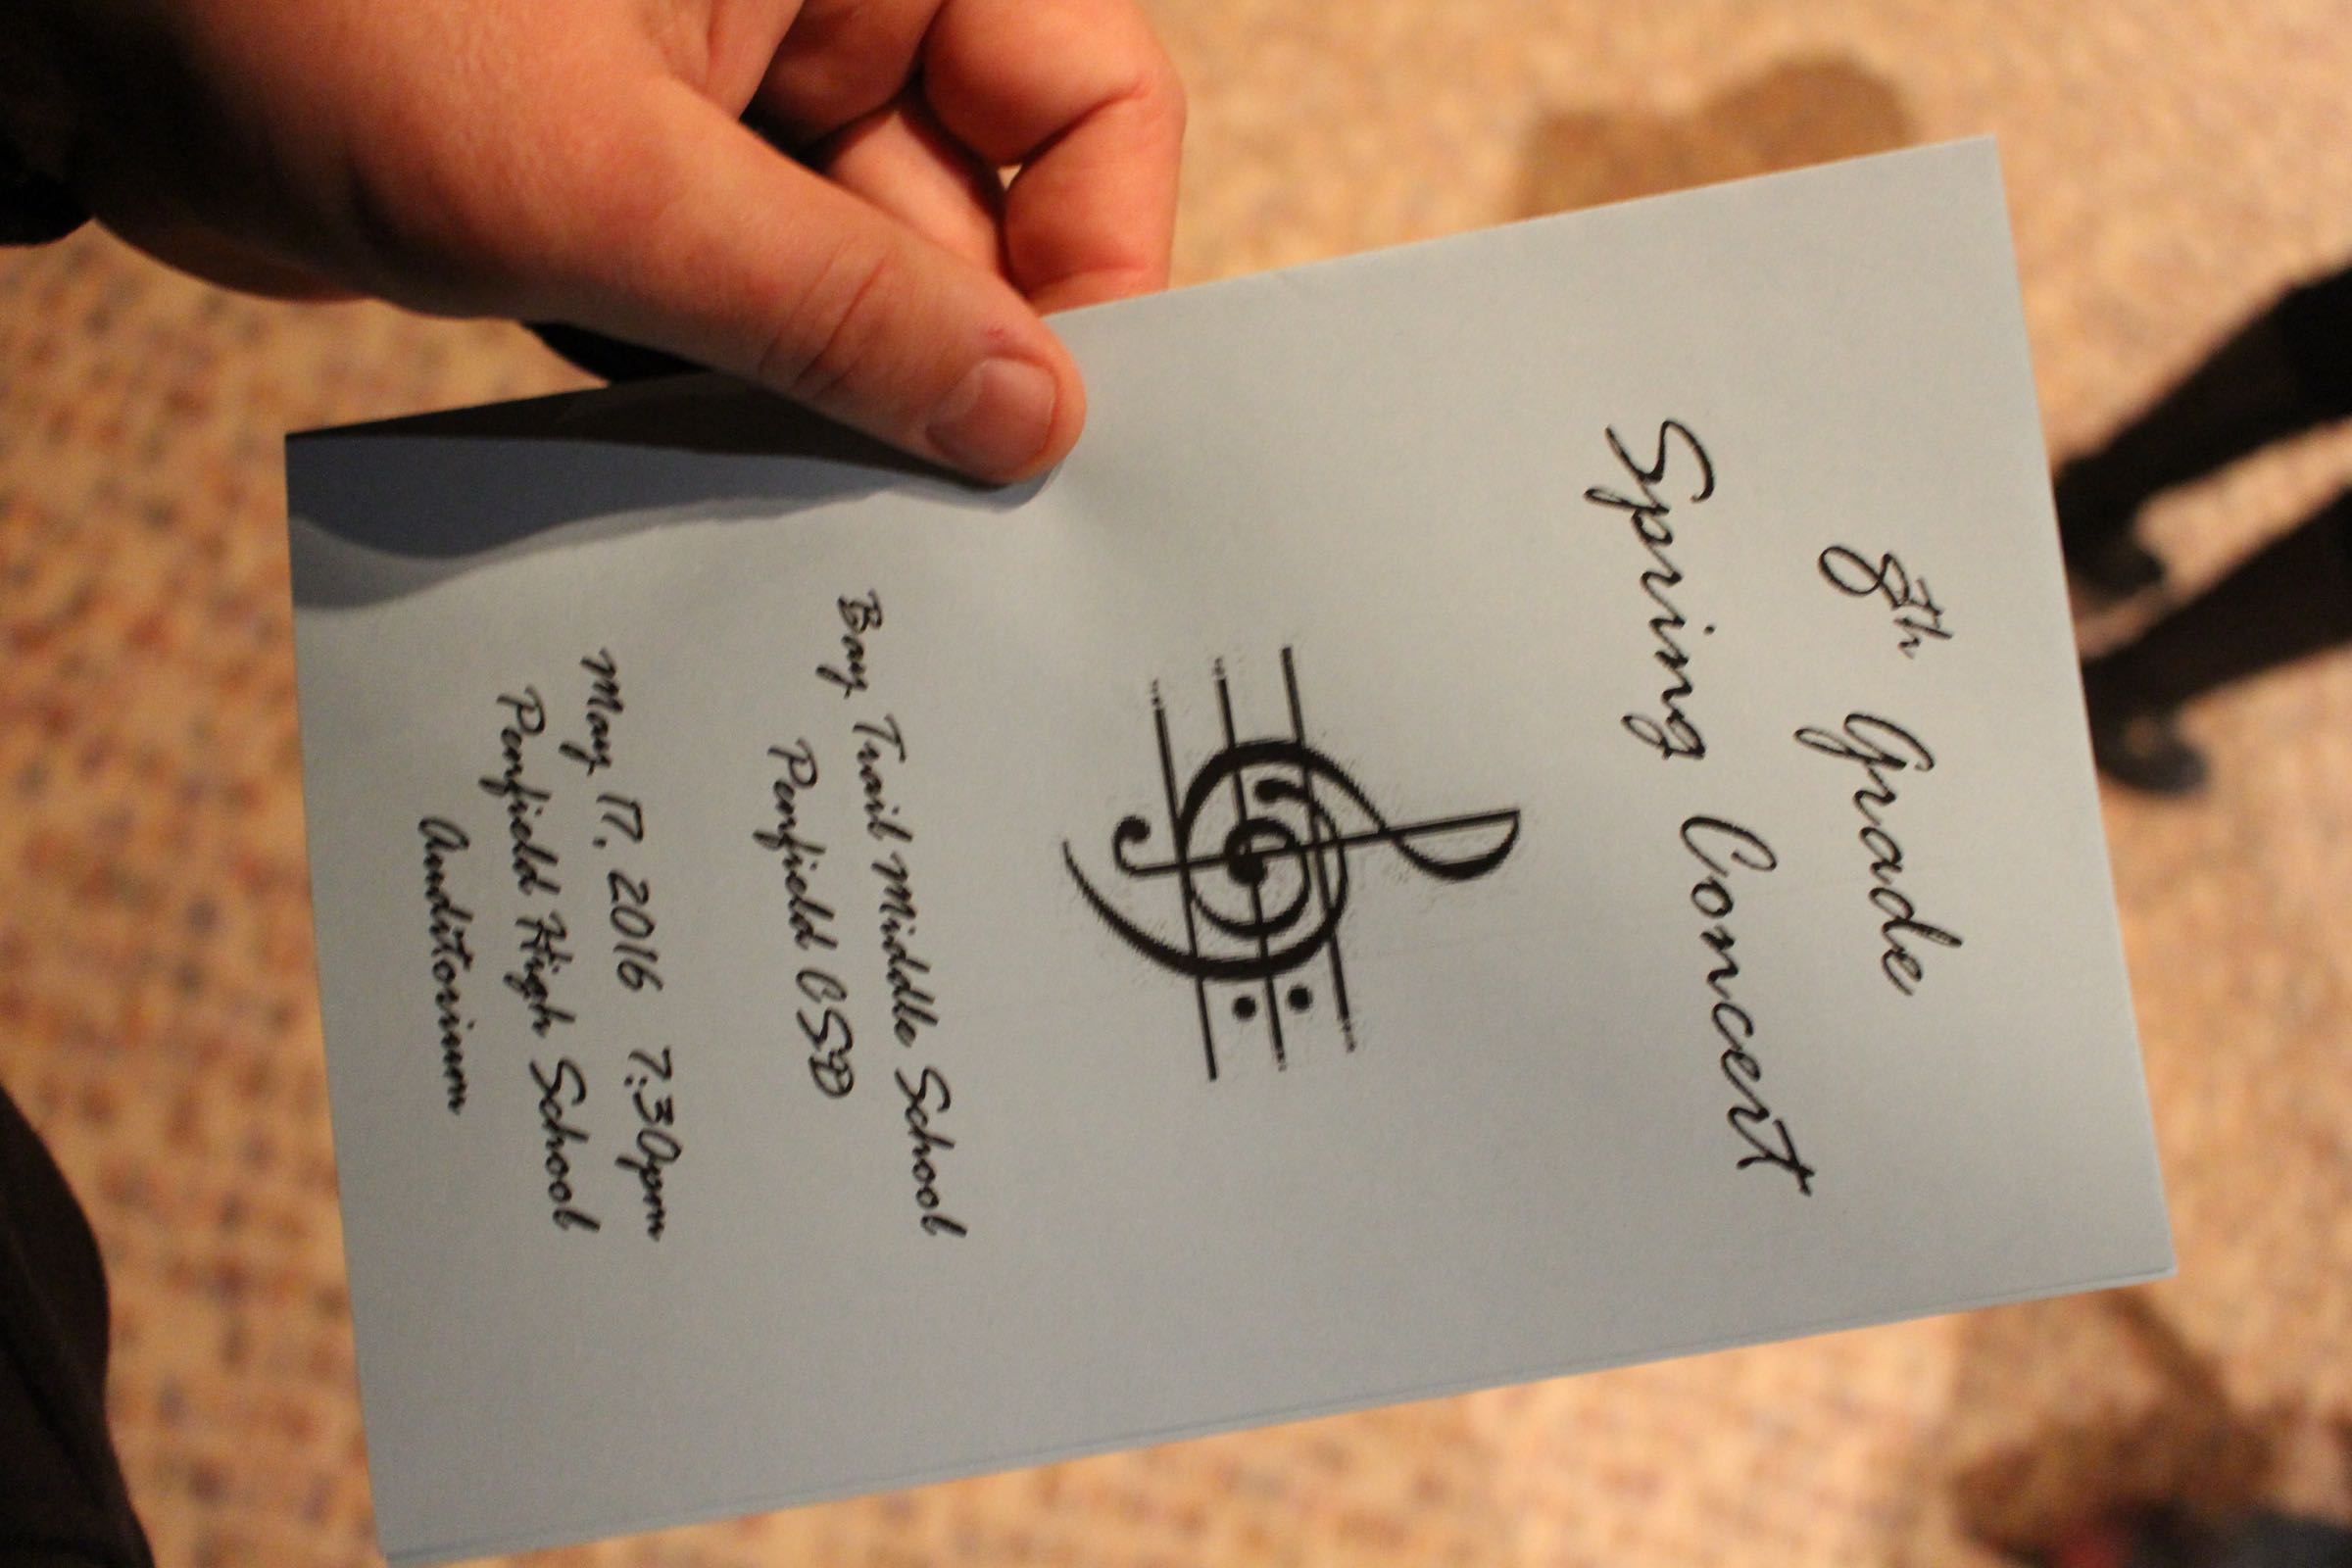 8th Grade
Spring Concert
Bay Trail Middle School
Penfield CSD
May 17, 2016 7:30pm
Penfield High School
Auditorium